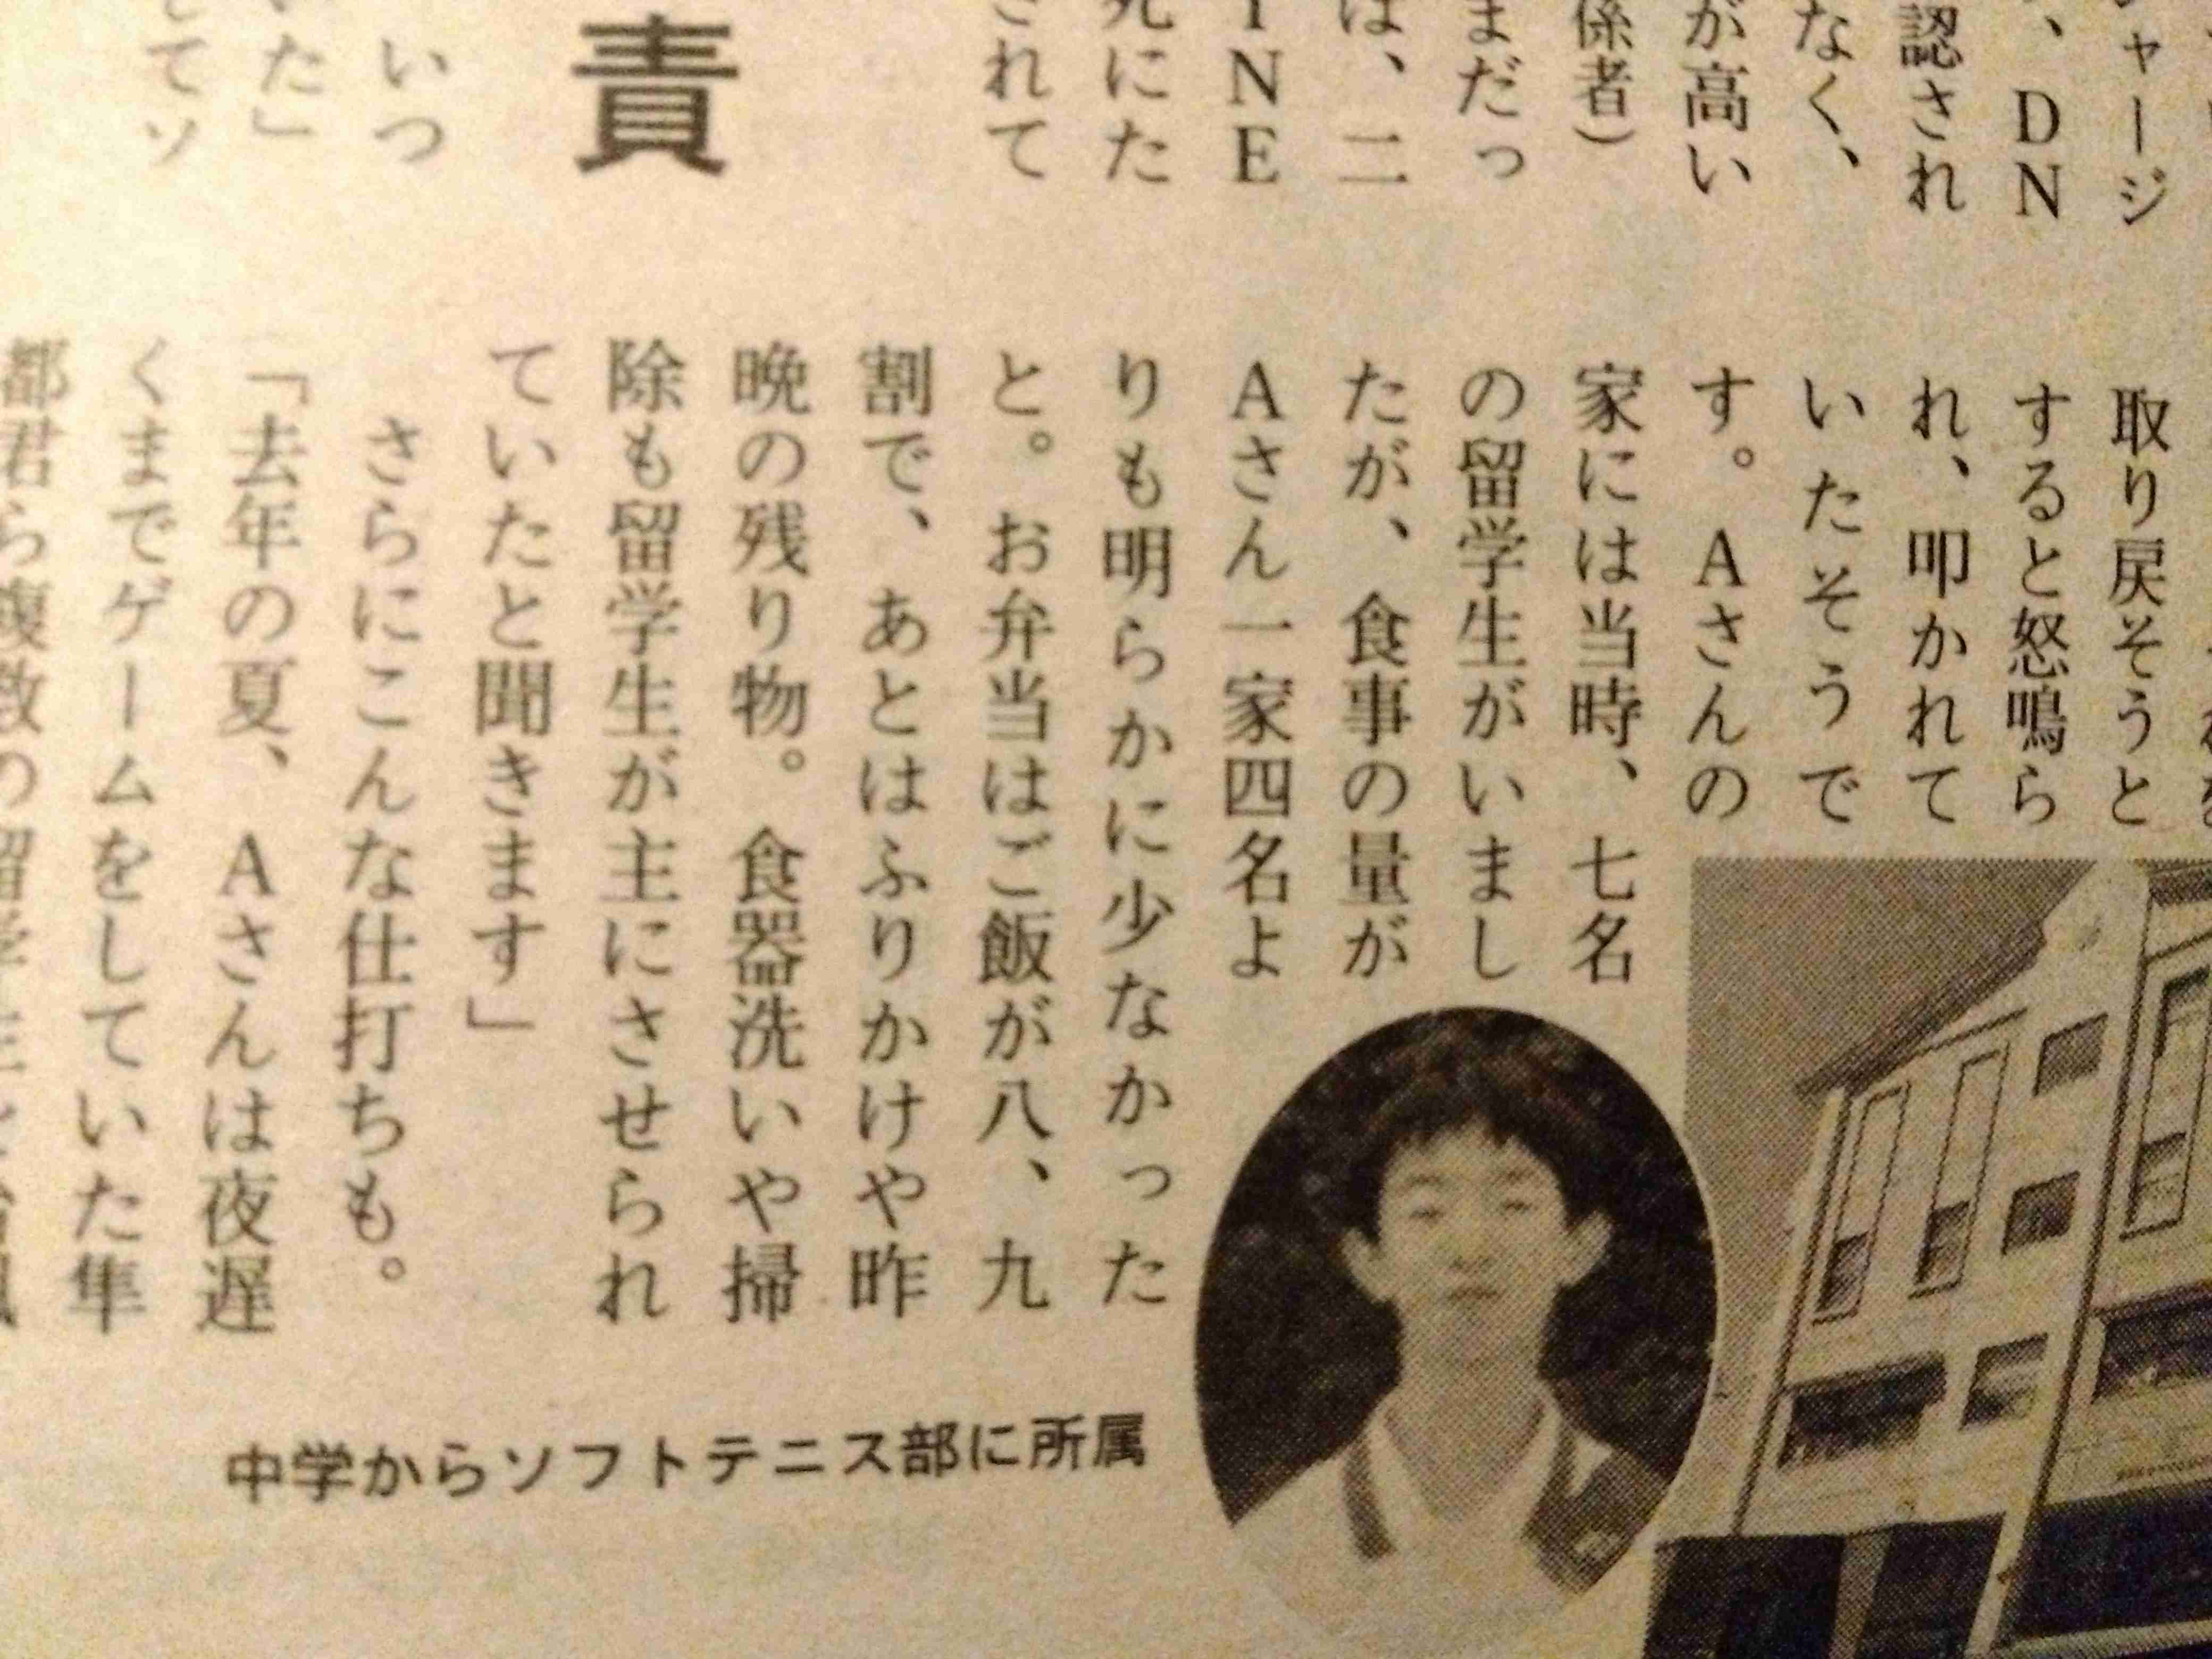 ャージ
、DN
認され
なく、
が高い
係者)
まだっ
は、二
INE
死にた
されて
責
いつ
た」
てソ
取り戻そうと
すると怒鳴ら
れ、叩かれて
いたそうで
す。Aさんの
家には当時、七名
の留学生がいまし
たが、食事の量が
Aさん一家四名よ
りも明らかに少なかった
と。お弁当はご飯が八、九
割で、あとはふりかけや昨
晩の残り物。食器洗いや掃
除も留学生が主にさせられ
ていたと聞きます」
さらにこんな仕打ちも。
「去年の夏、Aさんは夜遅
くまでゲームをしていた隼
都君ら複数の留学生を
中学からソフトテニス部に所属